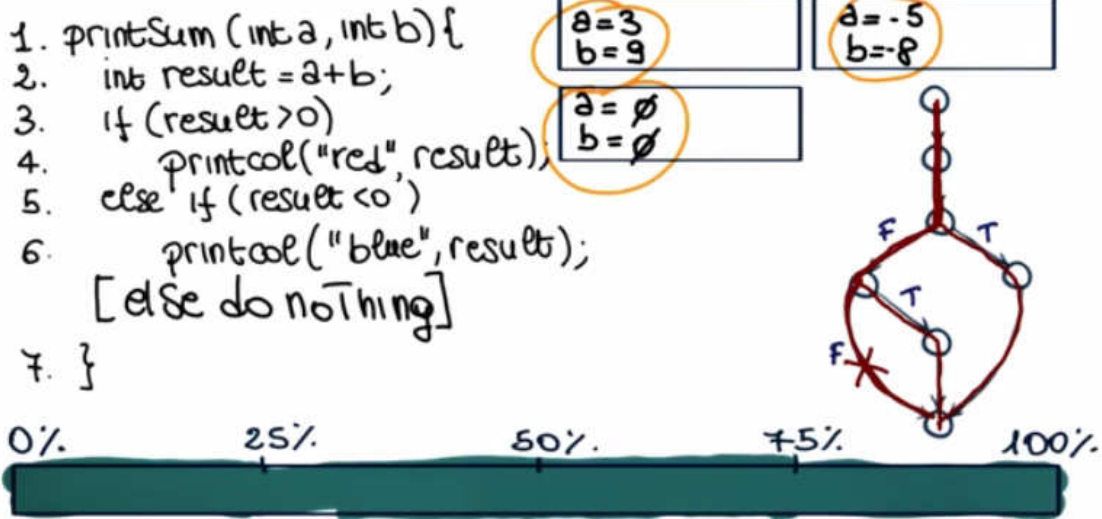 1. printSum (int a, int b) {
2. int result = a+b;
3. if (result >0)
4. printcol("red", result);
5. else if (result <0)
6. printcol("blue", result);
[else do nothing]
7. }
a=3
b=9
a=-5
b=-8
a= ∅
b= ∅
F
T
T
F
0%. 25%. 50%. 75%. 100%.